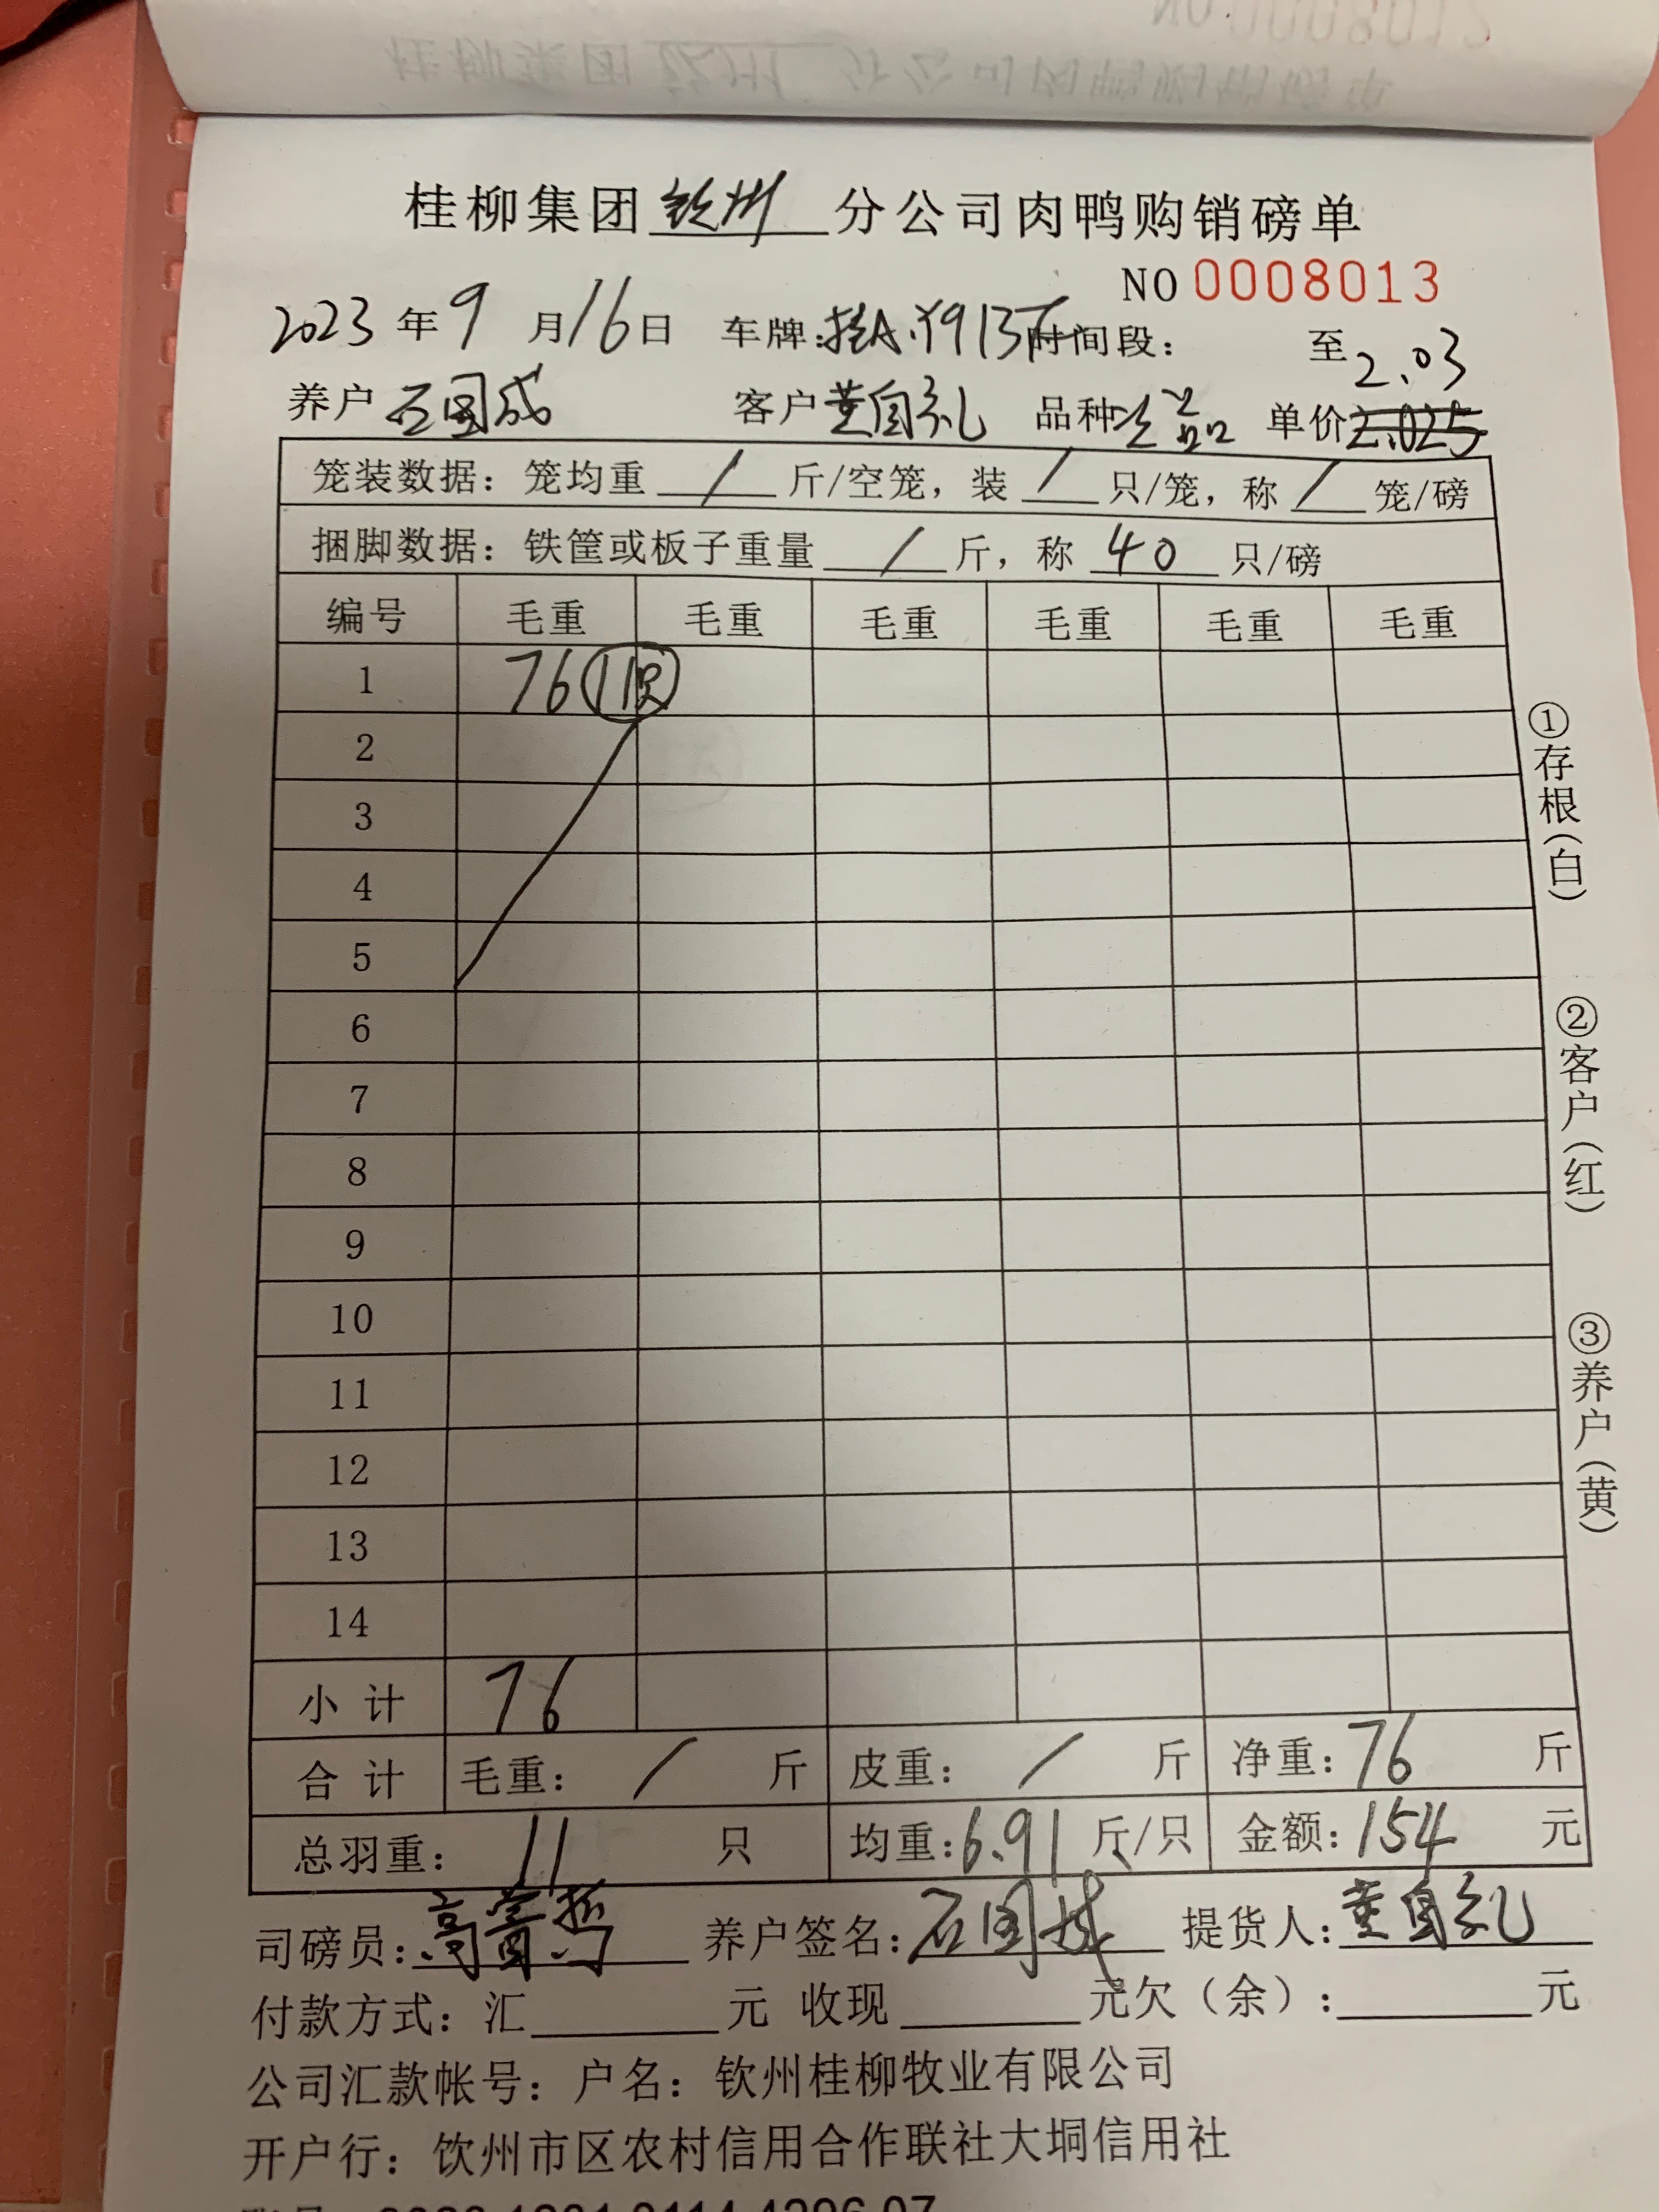 桂柳集团钦州分公司肉鸭购销磅单
NO 0008013
2023年9月16日 车牌: 时间段: 至
2.03
养户 石国成 客户 黄自礼 品种 单价 2.025
笼装数据: 笼均重 / 斤/空笼, 装 / 只/笼, 称 / 笼/磅
捆脚数据: 铁筐或板子重量 / 斤, 称 40 只/磅
编号 毛重 毛重 毛重 毛重 毛重 毛重
1 76 11只
2
3
4
5
6
7
8
9
10
11
12
13
14
小计 76
合计 毛重: / 斤 皮重: / 斤 净重: 76 斤
总羽重: 11 只 均重: 6.91 斤/只 金额: 154 元
司磅员: 养户签名: 石国成 提货人: 黄自礼
付款方式: 汇 元 收现 元欠(余): 元
公司汇款帐号: 户名: 钦州桂柳牧业有限公司
开户行: 钦州市区农村信用合作联社大垌信用社
①存根(白)
②客户(红)
③养户(黄)